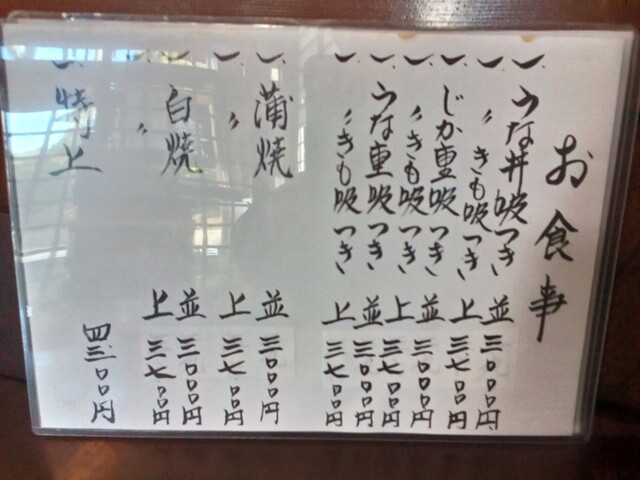 お食事
一、うな丼吸つき 並 三、〇〇〇円
一、〃 きも吸つき 上 三、七〇〇円
一、じか重吸つき 並 三、〇〇〇円
一、〃 きも吸つき 上 三、七〇〇円
一、うな重吸つき 並 三、〇〇〇円
一、〃 きも吸つき 上 三、七〇〇円
一、蒲焼 並 三、〇〇〇円
一、〃 上 三、七〇〇円
一、白焼 並 三、〇〇〇円
一、〃 上 三、七〇〇円
一、特上 四、三〇〇円